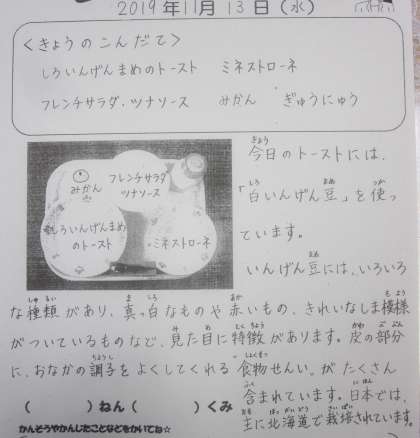 2019年11月13日(水)
＜きょうのこんだて＞
しろいんげんまめのトースト　ミネストローネ
フレンチサラダ・ツナソース　みかん　ぎゅうにゅう
みかん
フレンチサラダ
ツナソース
しろいんげんまめ
のトースト
ミネストローネ
今日のトーストには、
「白いんげん豆」を使っ
ています。
いんげん豆には、いろいろ
な種類があり、真っ白なものや赤いもの、きれいなしま模様
がついているものなど、見た目に特徴があります。皮の部分
に、おなかの調子をよくしてくれる「食物せんい」がたくさん
含まれています。日本では、
主に北海道で栽培されています。
(　　　)ねん(　　　)くみ
かんそうやかんじたことなどをかいてね☆